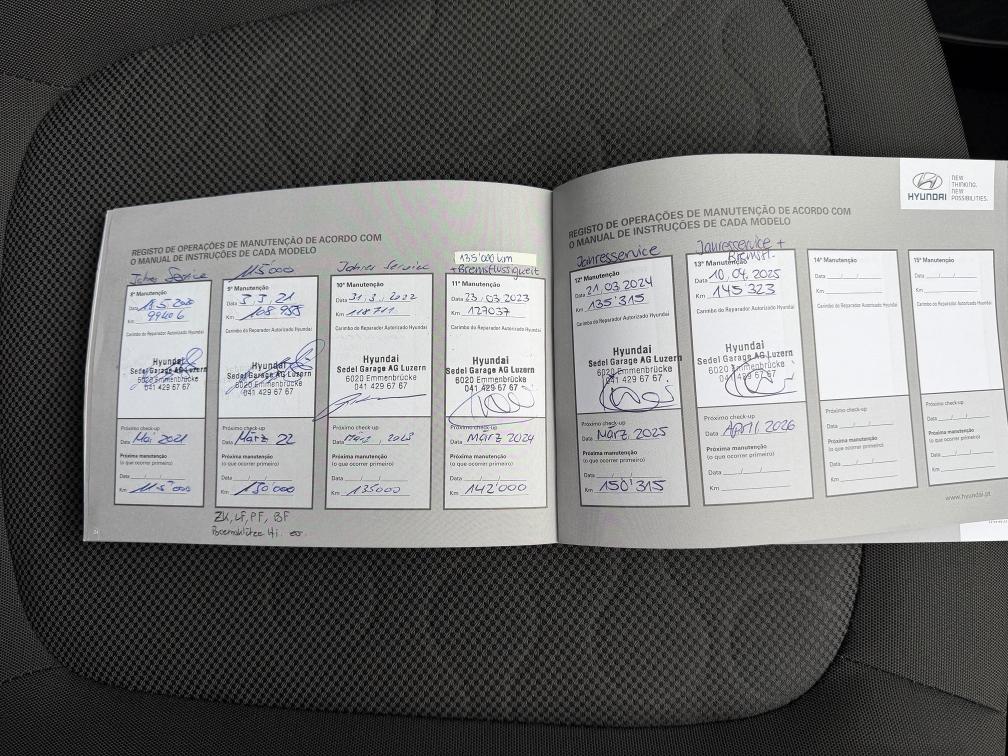 REGISTO DE OPERAÇÕES DE MANUTENÇÃO DE ACORDO COM
O MANUAL DE INSTRUÇÕES DE CADA MODELO
Service
8ª Manutenção
Data
Km 99406
Carimbo do Reparador Autorizado Hyundai
Hyundai
Sedel Garage AG Luzern
6020 Emmenbrücke
041 429 67 67
Próximo check-up
Data Mai 2021
Próxima manutenção
(o que ocorrer primeiro)
Data
Km 115'000
115'000
9ª Manutenção
Data 3.3.21
Km 108 955
Carimbo do Reparador Autorizado Hyundai
Hyundai
Sedel Garage AG Luzern
6020 Emmenbrücke
041 429 67 67
Próximo check-up
Data März 22
Próxima manutenção
(o que ocorrer primeiro)
Data
Km 130'000
ZK, LF, PF, BF
Jahres Service
10ª Manutenção
Data 31.3.2022
Km 118711
Carimbo do Reparador Autorizado Hyundai
Hyundai
Sedel Garage AG Luzern
6020 Emmenbrücke
041 429 67 67
Próximo check-up
Data März 2023
Próxima manutenção
(o que ocorrer primeiro)
Data
Km 135000
135'000 km
+Bremsflüssigkeit
11ª Manutenção
Data 23.03.2023
Km 127037
Carimbo do Reparador Autorizado Hyundai
Hyundai
Sedel Garage AG Luzern
6020 Emmenbrücke
041 429 67 67
Próximo check-up
Data März 2024
Próxima manutenção
(o que ocorrer primeiro)
Data
Km 142'000
HYUNDAI
NEW
THINKING.
NEW
POSSIBILITIES.
REGISTO DE OPERAÇÕES DE MANUTENÇÃO DE ACORDO COM
O MANUAL DE INSTRUÇÕES DE CADA MODELO
Jahresservice
12ª Manutenção
Data 21.03.2024
Km 135'315
Carimbo do Reparador Autorizado Hyundai
Hyundai
Sedel Garage AG Luzern
6020 Emmenbrücke
041 429 67 67
Próximo check-up
Data März 2025
Próxima manutenção
(o que ocorrer primeiro)
Data
Km 150'315
Jahresservice +
Bremsfl.
13ª Manutenção
Data 10.04.2025
Km 145'323
Carimbo do Reparador Autorizado Hyundai
Hyundai
Sedel Garage AG Luzern
6020 Emmenbrücke
041 429 67 67
Próximo check-up
Data April 2026
Próxima manutenção
(o que ocorrer primeiro)
Data
Km
14ª Manutenção
Data
Km
Carimbo do Reparador Autorizado Hyundai
Próximo check-up
Data
Próxima manutenção
(o que ocorrer primeiro)
Data
Km
15ª Manutenção
Data
Km
Carimbo do Reparador Autorizado Hyundai
Próximo check-up
Data
Próxima manutenção
(o que ocorrer primeiro)
Data
Km
www.hyundai.pt